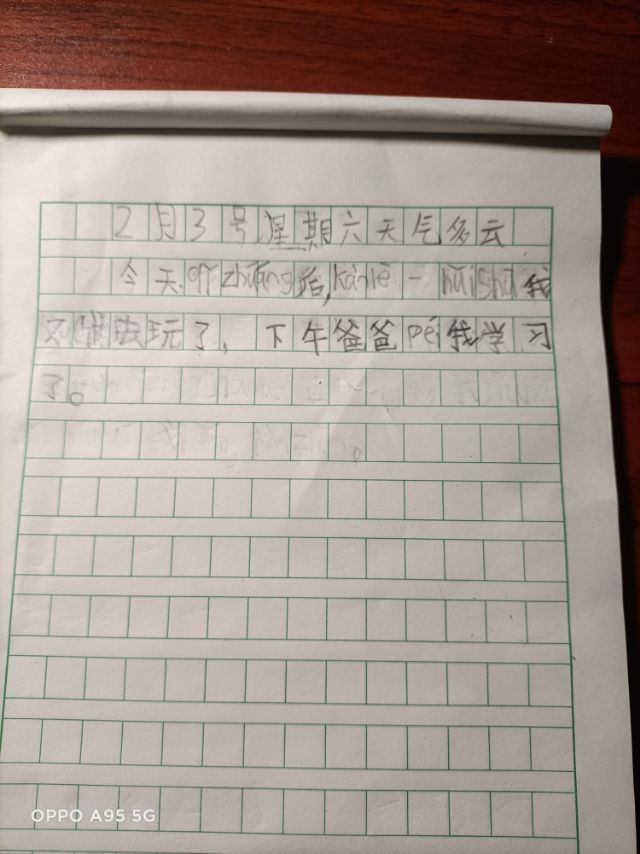 2月3号星期六天气多云
今天qǐ zhuāng后,kànlè一huìshū我
又 去玩了、下午爸爸péi我学习
了。
OPPO A95 5G